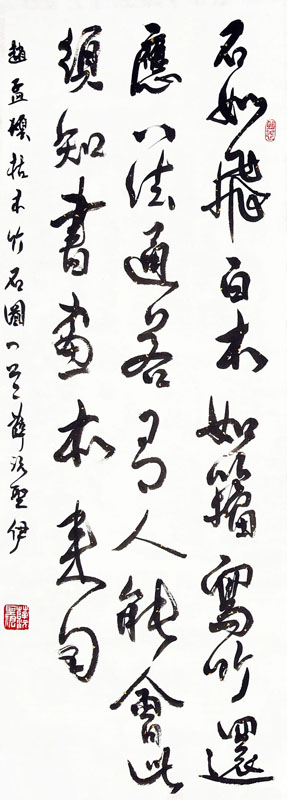 石如飛白木如籀寫竹還
應八法通若有人能會此
須知書畫本來同
趙孟頫枯木竹石圖